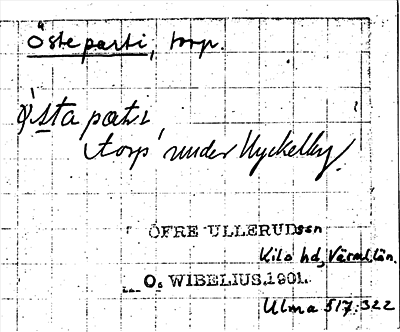 Östeparti, torp.
Östa parti
torp under Nyckelby.
ÖFRE ULLERUDssn
Kils hd, Värml. län.
O. WIBELIUS.1901.
Ulma 517:322